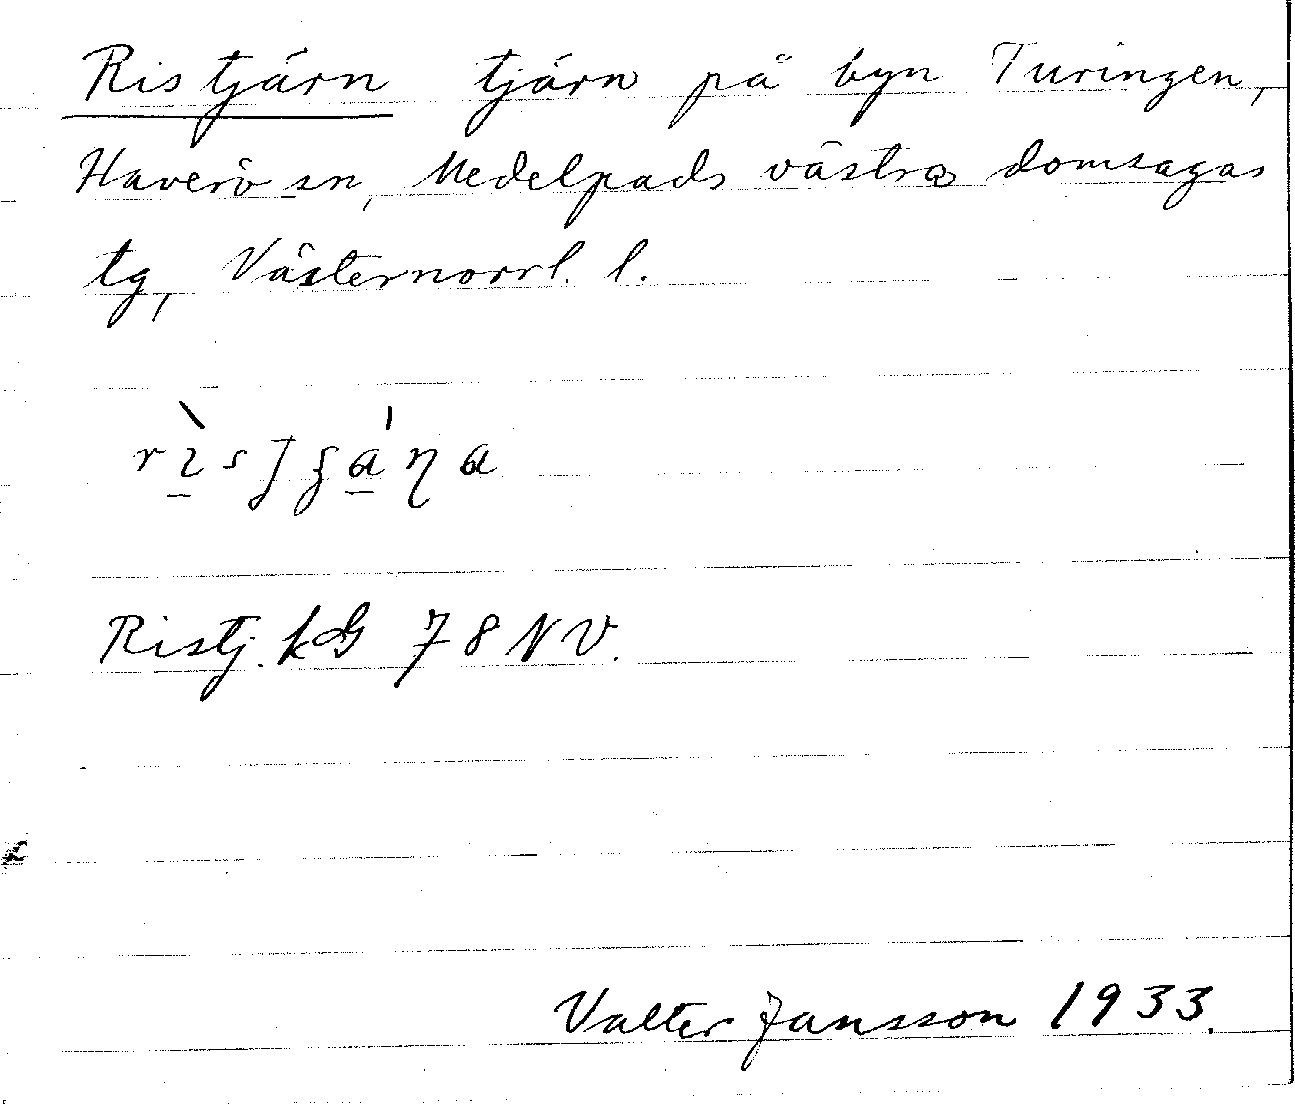 Ristjärn tjärn på byn Turingen,
Haverö sn, Medelpads västra domsagas
tg, Västernorrl. l.
Ristj. kG 78 NV.
Valter Jansson 1933.